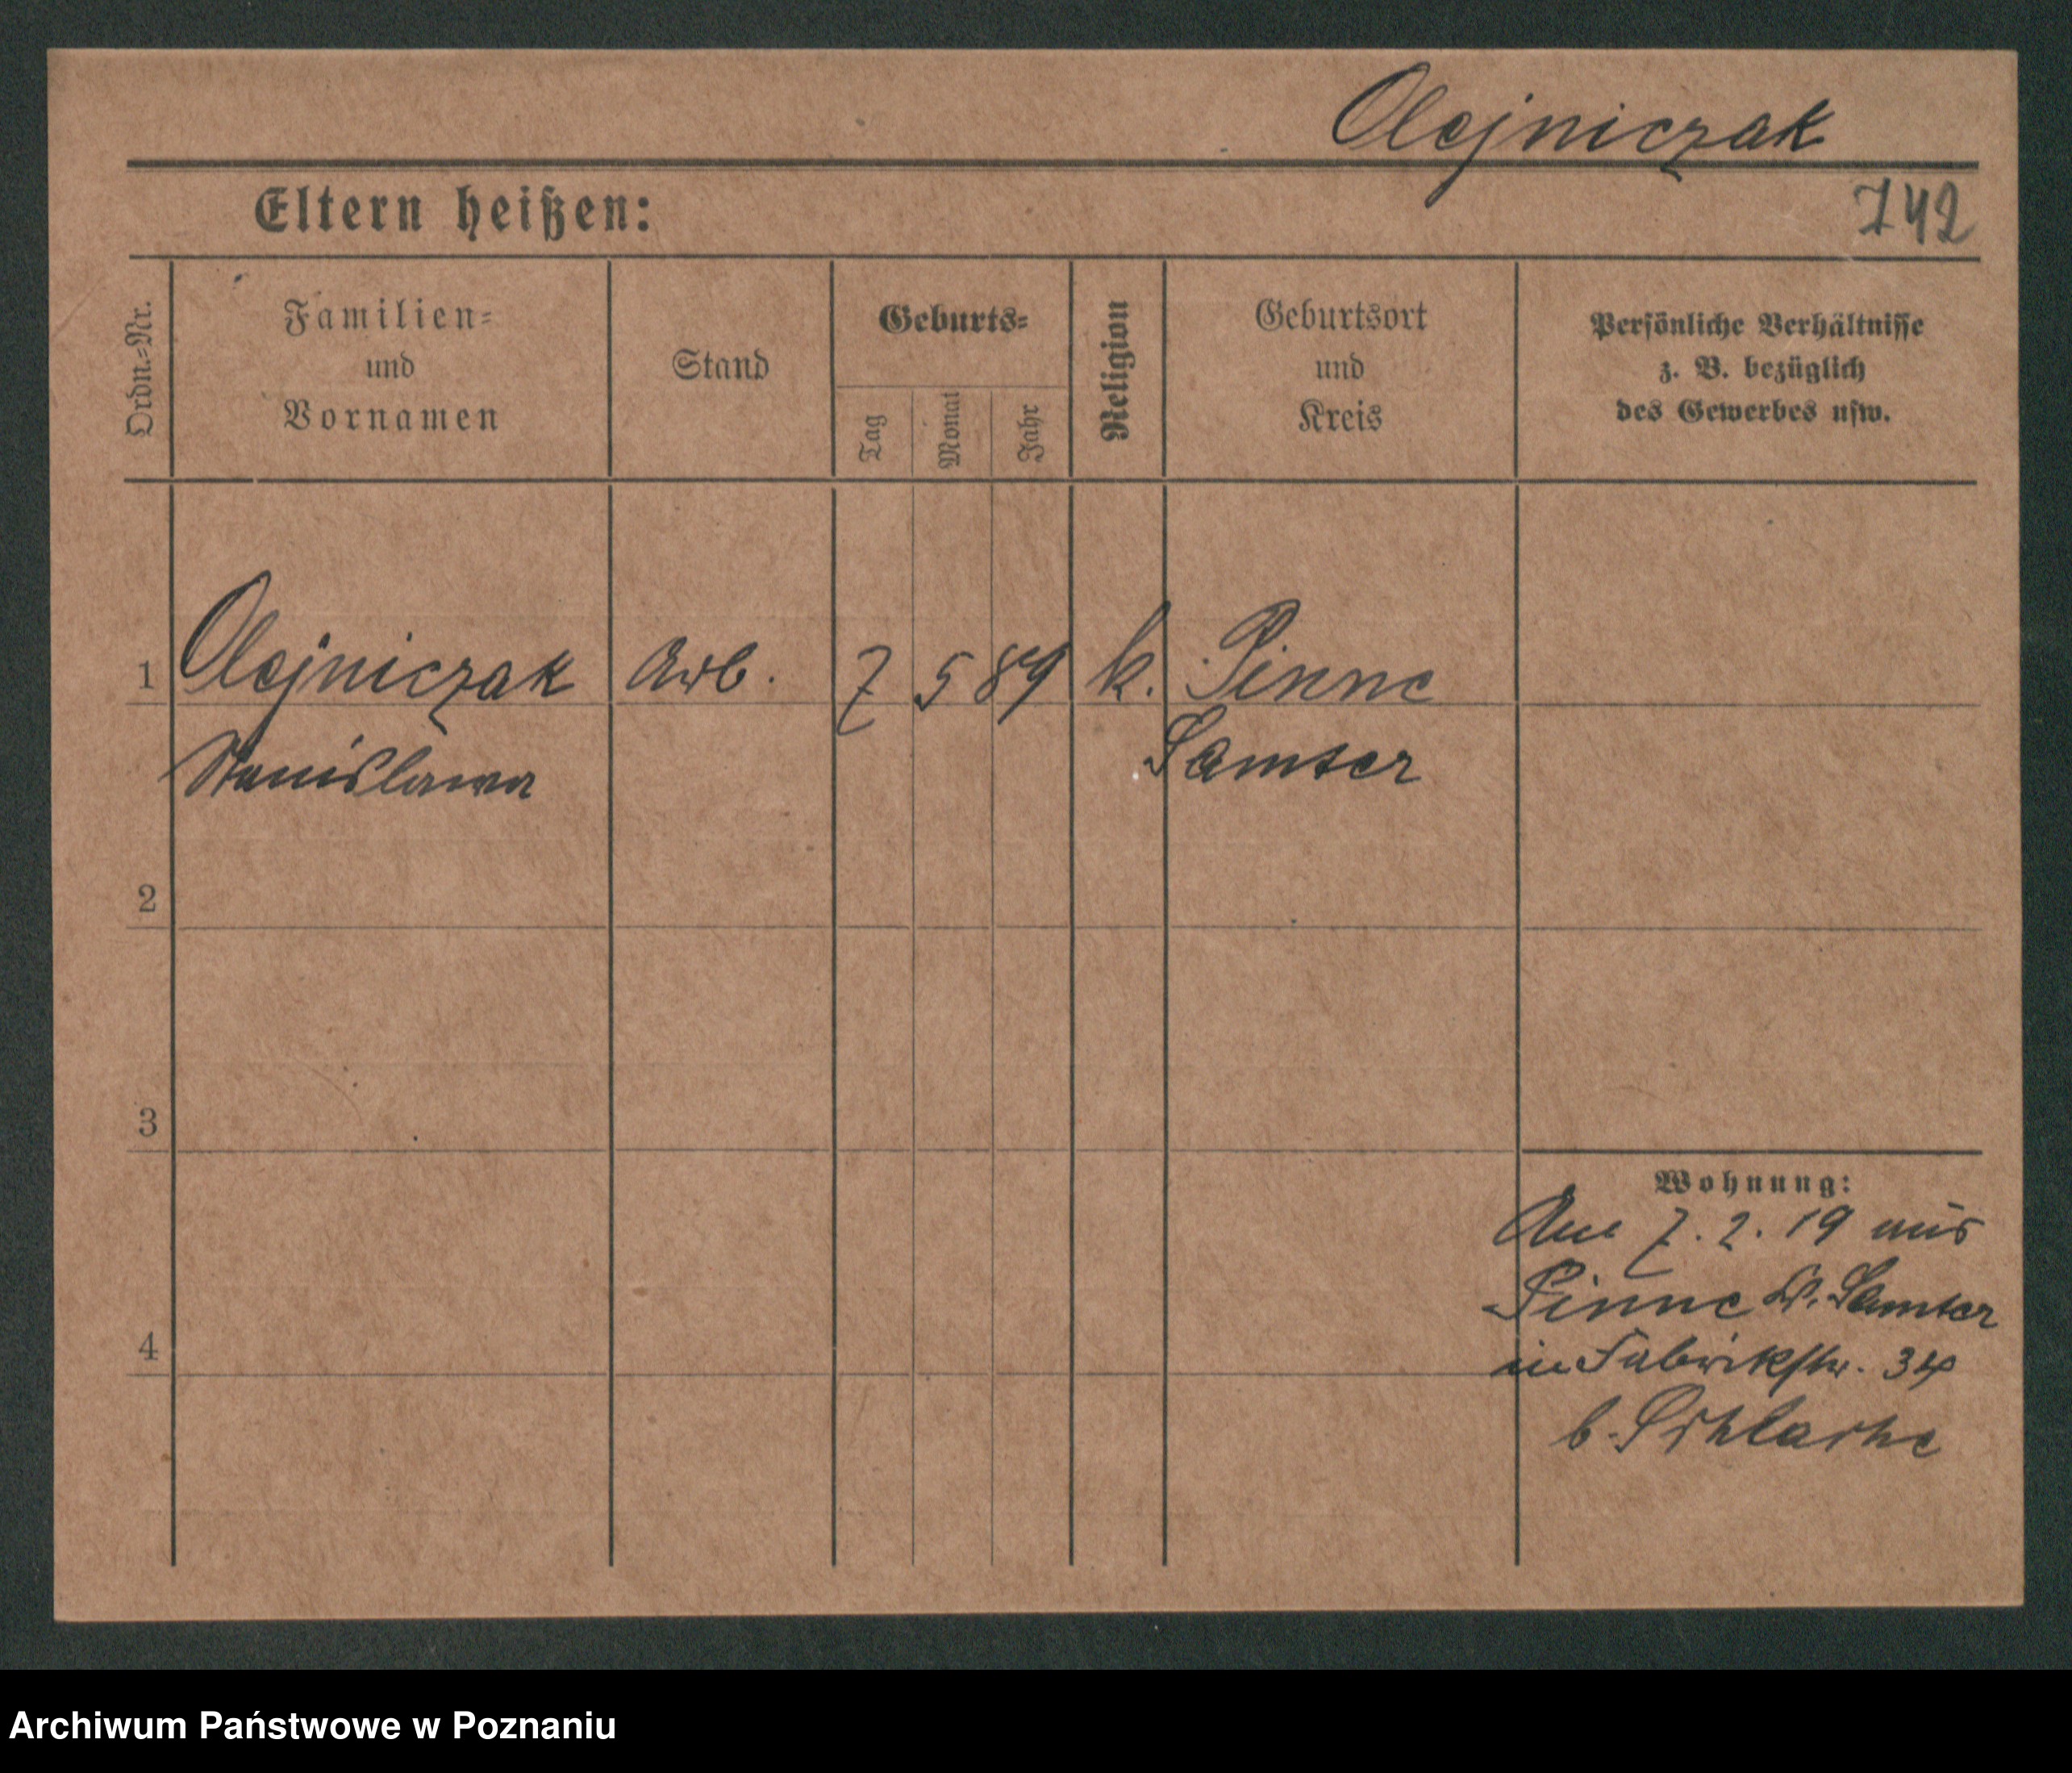 Olejniczak
Eltern heißen:
742
Ordn.=Nr.
Familien=
und
Vornamen
Stand
Geburts=
Tag
Monat
Jahr
Religion
Geburtsort
und
Kreis
Persönliche Verhältnisse
z. B. bezüglich
des Gewerbes usw.
1 Olejniczak Arb. 7 5 89 k. Pinne
Stanislawa Samter
2
3
Wohnung:
Am 7. 2. 19 aus
Pinne Kr. Samter
in Fabrikstr. 34
4
b.
Archiwum Państwowe w Poznaniu